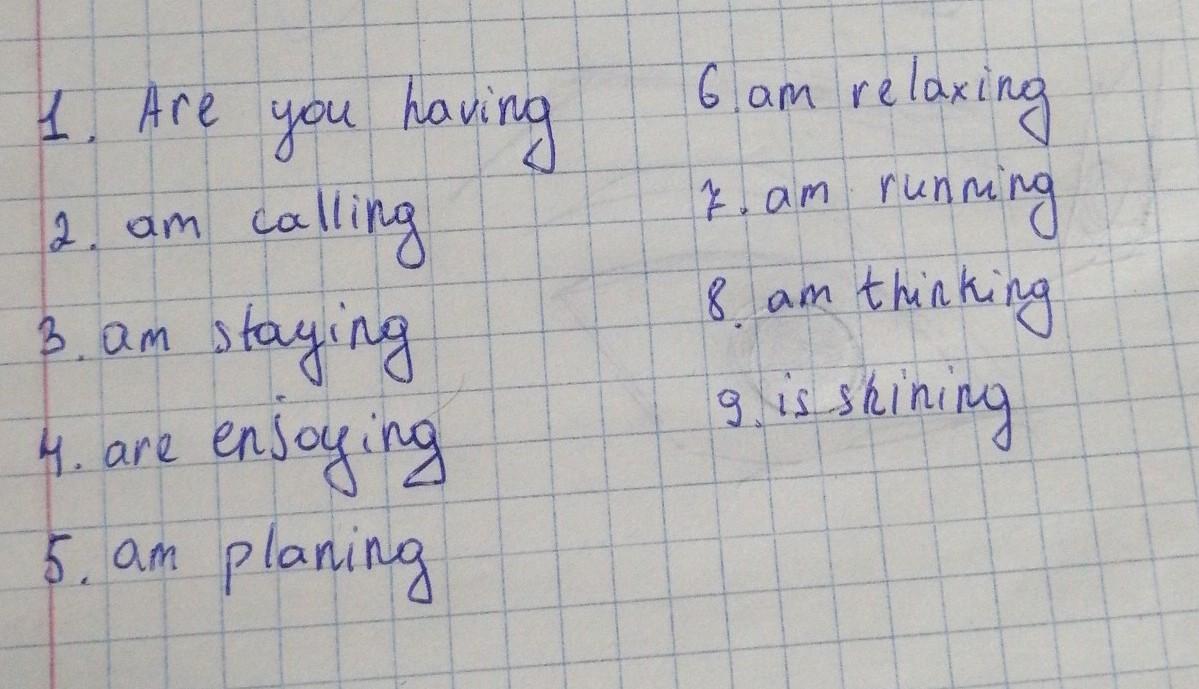 1. Are you having
2. am calling
3. am staying
4. are enjoying
5. am planing
6. am relaxing
7. am running
8. am thinking
9. is shining